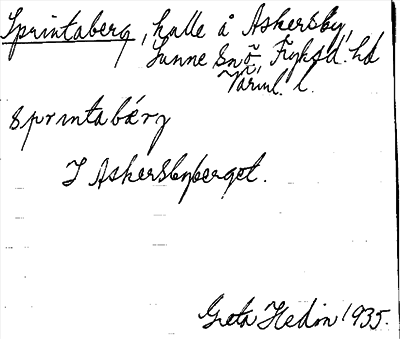 Sprintaberg, kulle å Askersby,
Sunne sn, Fryksd. hd
Värml. l.
sprintabärj
I Askersbyberget.
Greta Hedin 1935.